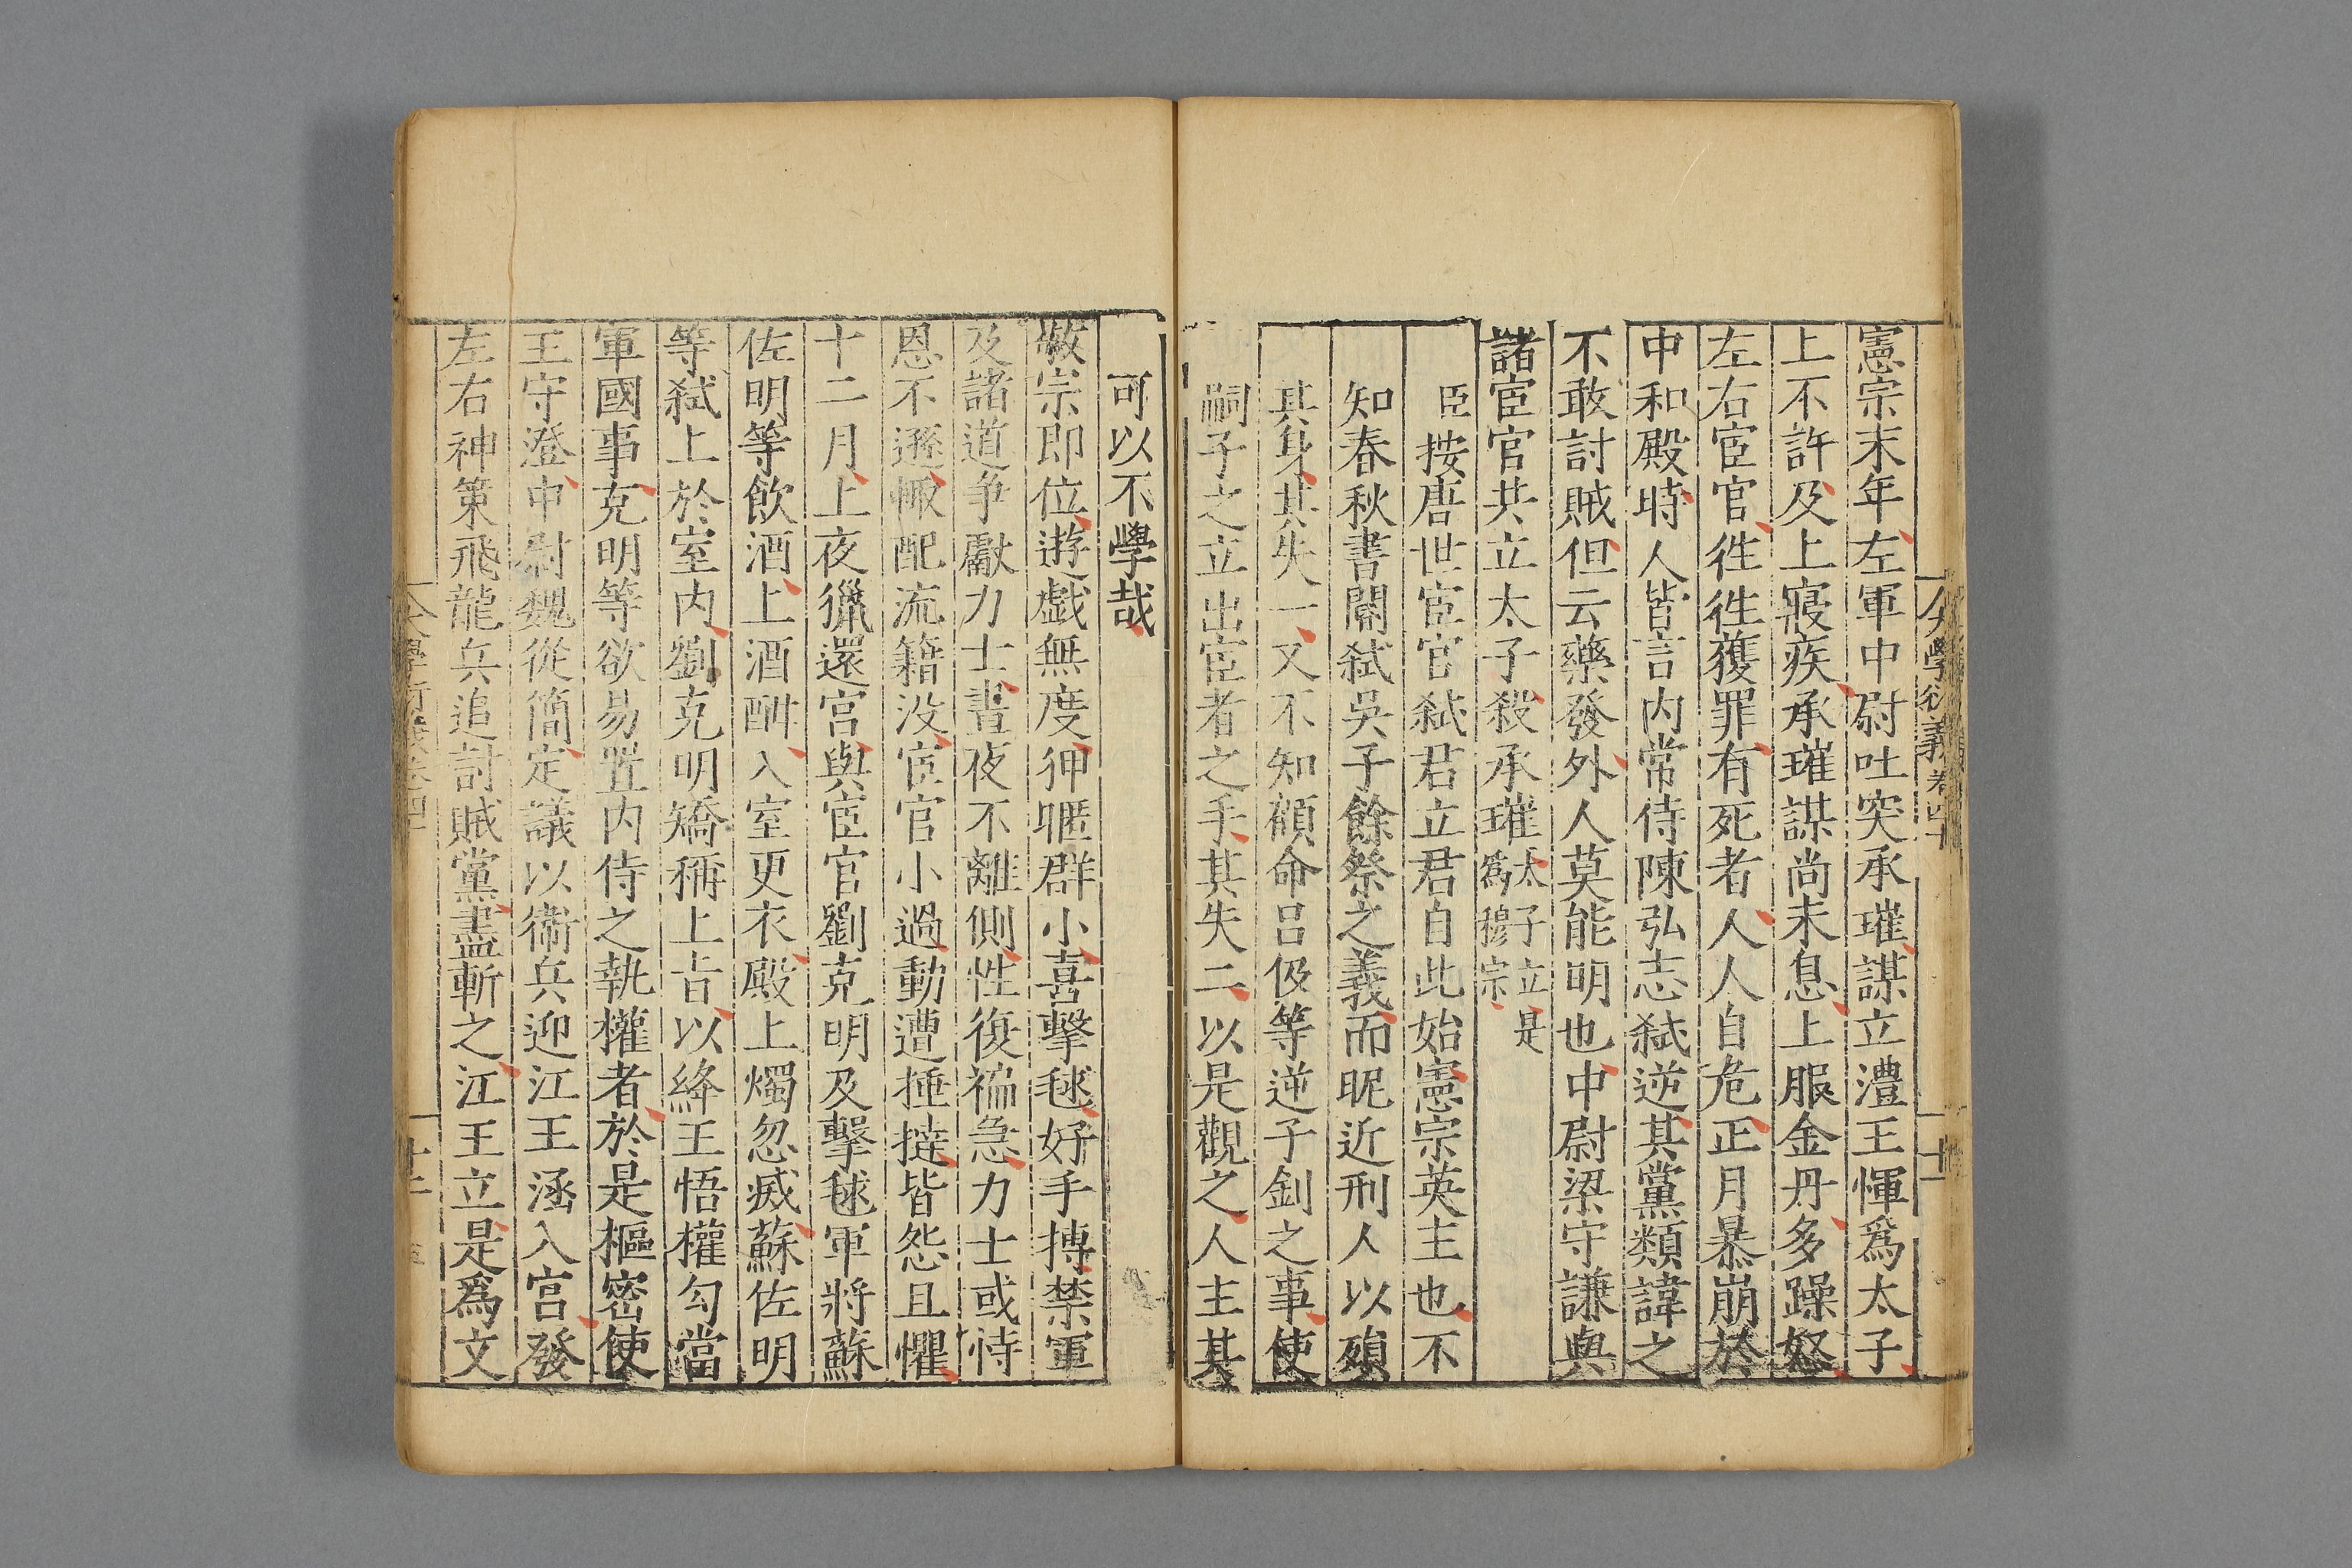 大學衍義卷四十
十一
憲宗末年左軍中尉吐突承璀謀立澧王惲爲太子
上不許及上寢疾承璀謀尚未息上服金丹多躁怒
左右宦官徃徃獲罪有死者人人自危正月暴崩於
中和殿時人皆言内常侍陳弘志弑逆其黨類諱之
不敢討賊但云藥發外人莫能明也中尉梁守謙與
諸宦官共立太子殺承璀太子立是
爲穆宗
臣按唐世宦官弑君立君自此始憲宗英主也不
知春秋書閽弑吳子餘祭之義而昵近刑人以殞
其身其失一又不知顧命吕伋等逆子釗之事使
嗣子之立出宦者之手其失二以是觀之人主其
可以不學哉
敬宗即位遊戯無度狎暱群小喜擊毬好手搏禁軍
及諸道争獻力士晝夜不離側性復褊急力士或恃
恩不遜輙配流籍没宦官小過動遭捶撻皆怨且懼
十二月上夜獵還宫與宦官劉克明及擊毬軍將蘇
佐明等飲酒上酒酣入室更衣殿上燭忽滅蘇佐明
等弑上於室内劉克明矯稱上㫖以絳王悟權勾當
軍國事克明等欲易置内侍之執權者於是樞密使
王守澄中尉魏從簡定議以衛兵迎江王涵入宫發
左右神策飛龍兵追討賊黨盡斬之江王立是爲文
大學衍義卷四十
十二